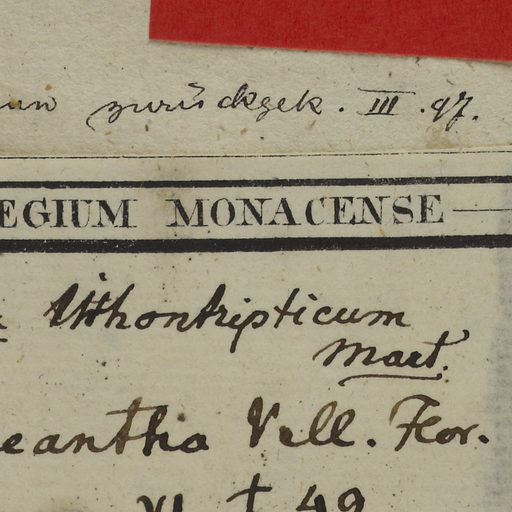 zurückgek. III. 97.
EGIUM MONACENSE
lithontripticum
Mart.
eantha Vell. Flor.
VI t 49